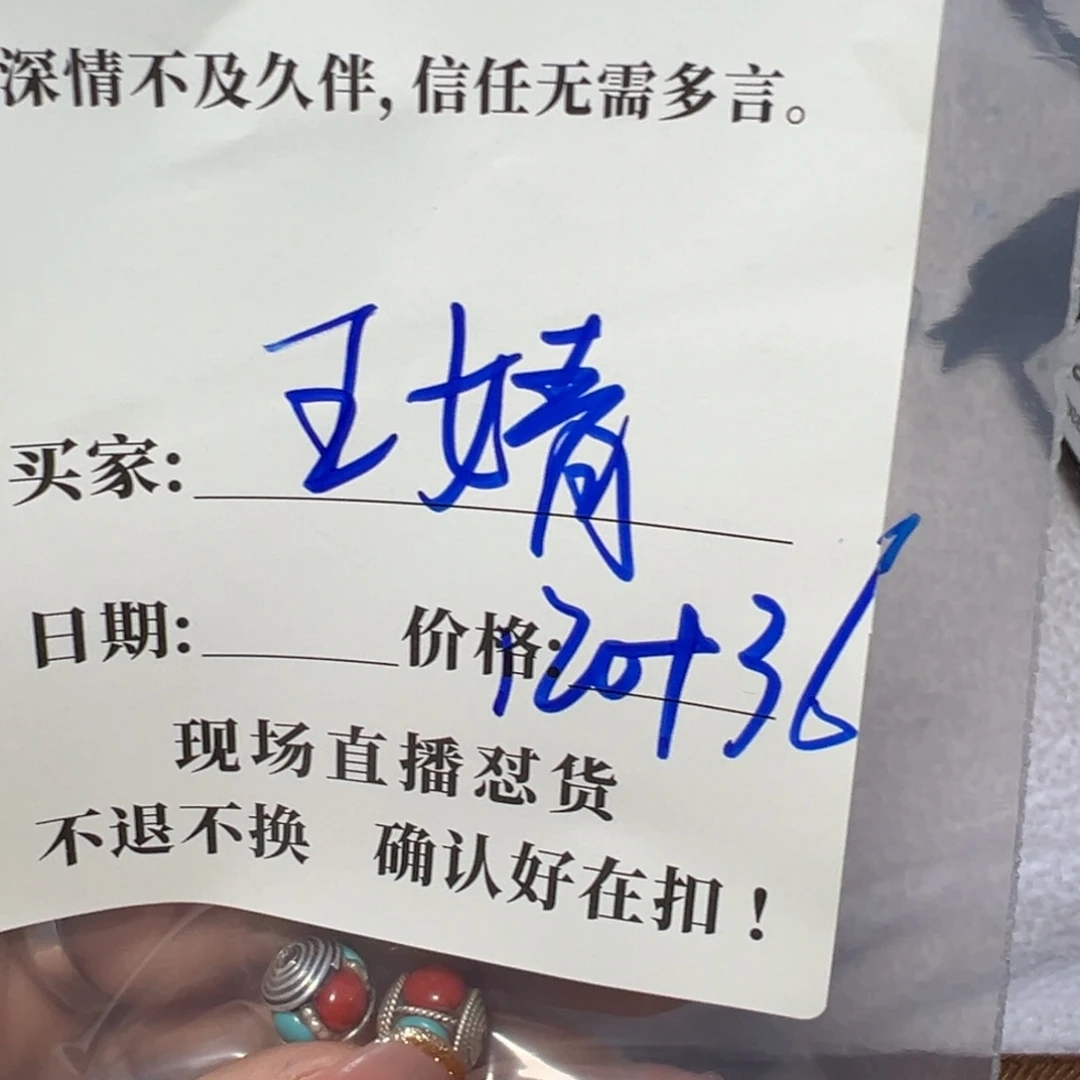 深情不及久伴,信任无需多言。
买家:王婧
日期: 价格:120+36
现场直播怼货
不退不换 确认好在扣!